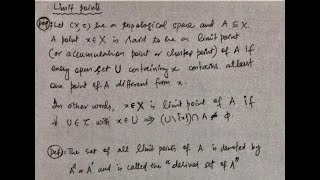 Limit points
Def: Let (X, τ) be a topological space and A ⊆ X.
A point x∈X is said to be a limit point
(or accumulation point or cluster point) of A if
every open set U containing x contains atleast
one point of A different from x.
In other words, x∈X is limit point of A if
∀ U∈τ with x∈U ⇒ (U\{x})∩A ≠ ϕ.
Def: The set of all limit points of A is denoted by
or A' and is called the "derived set of A"